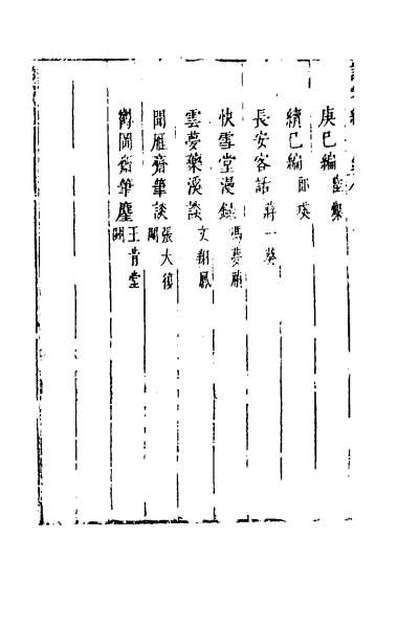 庚巳編 陸粲
續巳編 郎瑛
長安客話 蔣一葵
快雪堂漫録 馮夢禎
雲夢藥溪談 文翔鳳
聞雁齋筆談 張大復 闕
鬱岡齋筆麈 王肯堂 闕